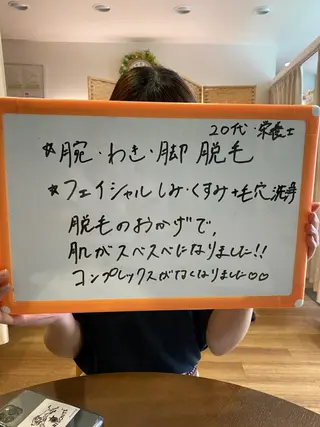 20代・栄養士
☆腕・わき・脚 脱毛
☆フェイシャル しみ・くすみ+毛穴洗浄
脱毛のおかげで、
肌がスベスベになりました!!
コンプレックスがなくなりました♡♡